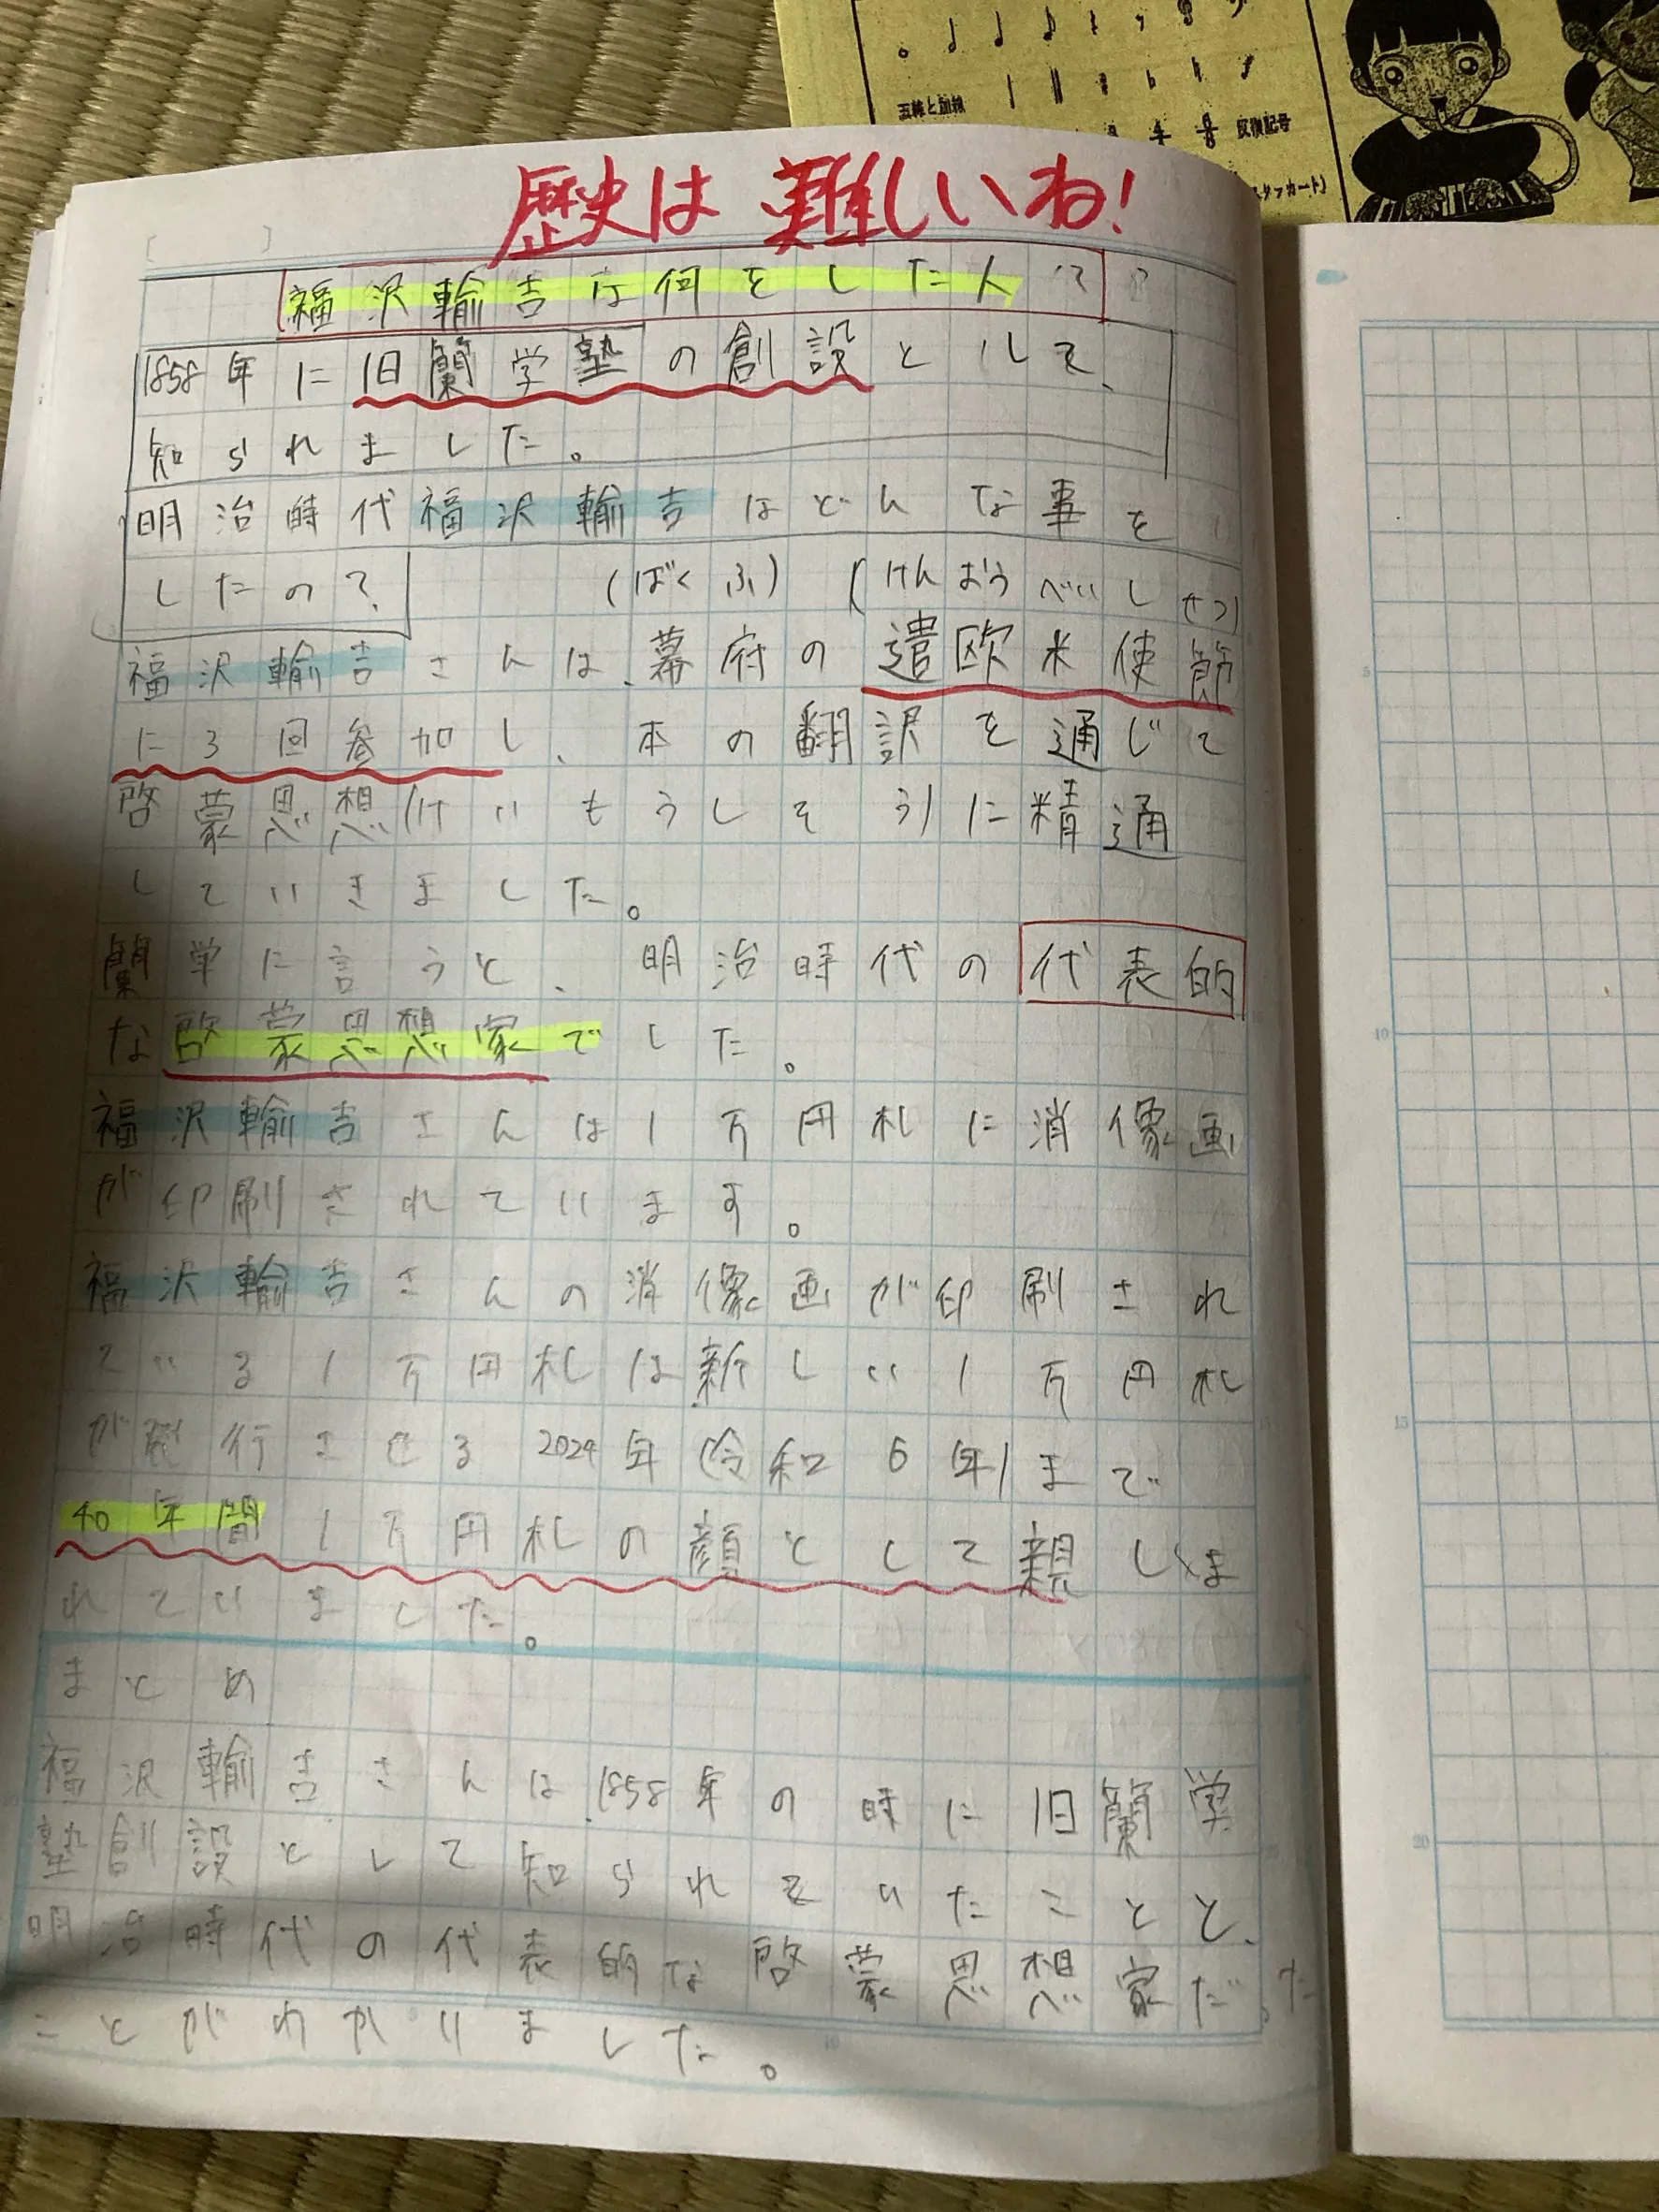 五線と加線
反復記号
スタッカート)
歴史は難しいね!
福沢輸吉は何をした人?
1858年に旧蘭学塾の創設として、
知られました。
明治時代福沢輸吉はどんな事を
したの?
(ばくふ) (けんおうべいしせつ)
福沢輸吉さんは、幕府の遣欧米使節
に3回参加し、本の翻訳を通じて
啓蒙思想(けいもうしそう)に精通
していきました。
蘭学に言うと、明治時代の代表的
な啓蒙思想家でした。
福沢輸吉さんは1万円札に消像画
が印刷されています。
福沢輸吉さんの消像画が印刷され
ている1万円札は新しい1万円札
が発行させる2024年(令和6年)まで
40年間1万円札の顔として親しま
れていました。
まとめ
福沢輸吉さんは、1858年の時に旧蘭学
塾創設として知られていたことと、
明治時代の代表的な啓蒙思想家だった
ことがわかりました。
5
10
15
20